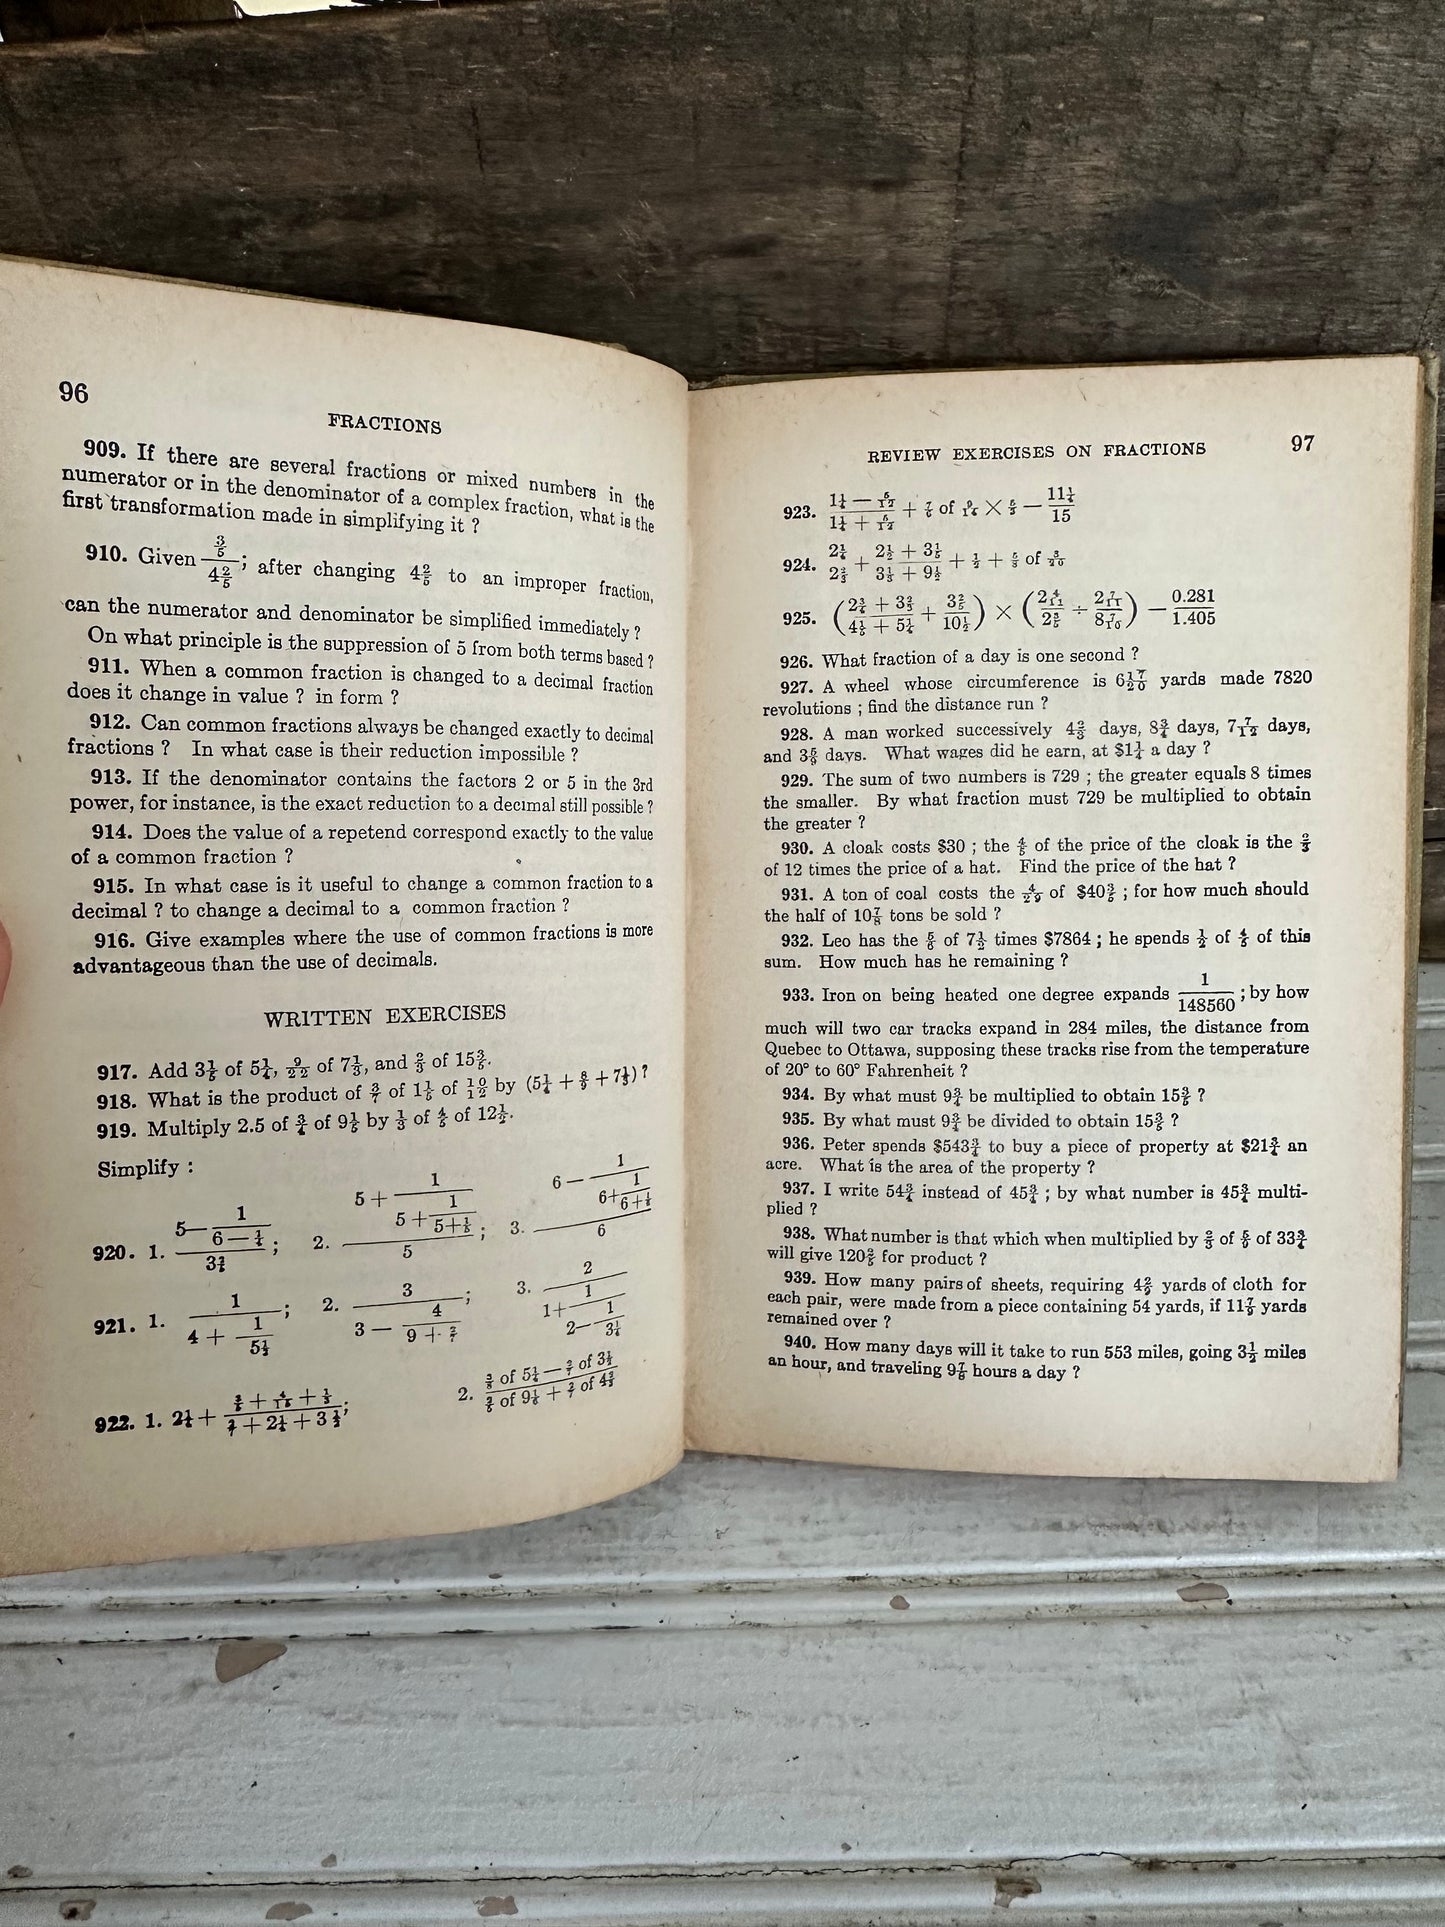 96
FRACTIONS
909. If there are several fractions or mixed numbers in the
numerator or in the denominator of a complex fraction, what is the
first transformation made in simplifying it ?
910. Given (3/5)/(4 2/5); after changing 4 2/5 to an improper fraction,
can the numerator and denominator be simplified immediately ?
On what principle is the suppression of 5 from both terms based ?
911. When a common fraction is changed to a decimal fraction
does it change in value ? in form ?
912. Can common fractions always be changed exactly to decimal
fractions ? In what case is their reduction impossible ?
913. If the denominator contains the factors 2 or 5 in the 3rd
power, for instance, is the exact reduction to a decimal still possible ?
914. Does the value of a repetend correspond exactly to the value
of a common fraction ?
915. In what case is it useful to change a common fraction to a
decimal ? to change a decimal to a common fraction ?
916. Give examples where the use of common fractions is more
advantageous than the use of decimals.
WRITTEN EXERCISES
917. Add 3 1/5 of 5 1/4, 9/22 of 7 1/3, and 2/3 of 15 3/5.
918. What is the product of 3/7 of 1 1/5 of 10/12 by (5 1/4 + 8/9 + 7 1/3) ?
919. Multiply 2.5 of 3/4 of 9 1/5 by 1/3 of 4/5 of 12 1/2.
Simplify :
920. 1. (5 − 1/(6 − 1/4))/; 2. (5 + 1/(5 + 1/(5 + 1/5)))/5; 3. (6 − 1/(6 + 1/(6 + 1/6)))/6
921. 1. 1/(4 + 1/(5 1/3)); 2. 3/(3 − 4/(9 + 2/7)); 3. 2/(1 + 1/(2 − 1/(3 1/4)))
922. 1. 2. of 5 1/4 − 2/7 of of 9 1/6 + 2/7 of
REVIEW EXERCISES ON FRACTIONS
97
923. (1 1/4 − 5/12)/(1 1/4 + 5/12) + 7/6 of 9/14 × − (11 1/4)/15
924. + (2 1/2 + 3 1/5)/(3 1/3 + 9 1/2) + 1/2 + of 3/20
925. (+ (3 2/5)/(10 1/2)) × ((2 4/11)/(2 3/5) ÷ (2 7/11)/(8 7/10)) − 0.281/1.405
926. What fraction of a day is one second ?
927. A wheel whose circumference is 6 17/20 yards made 7820
revolutions ; find the distance run ?
928. A man worked successively 4 2/3 days, 8 3/4 days, 7 7/12 days,
and 3 5/6 days. What wages did he earn, at $1 1/4 a day ?
929. The sum of two numbers is 729 ; the greater equals 8 times
the smaller. By what fraction must 729 be multiplied to obtain
the greater ?
930. A cloak costs $30 ; the 4/5 of the price of the cloak is the 2/3
of 12 times the price of a hat. Find the price of the hat ?
931. A ton of coal costs the 4/29 of $40 3/5 ; for how much should
the half of 10 7/8 tons be sold ?
932. Leo has the 5/6 of 7 1/2 times $7864 ; he spends 1/2 of 4/5 of this
sum. How much has he remaining ?
933. Iron on being heated one degree expands 1/148560 ; by how
much will two car tracks expand in 284 miles, the distance from
Quebec to Ottawa, supposing these tracks rise from the temperature
of 20° to 60° Fahrenheit ?
934. By what must 9 3/4 be multiplied to obtain 15 3/5 ?
935. By what must 9 3/4 be divided to obtain 15 3/5 ?
936. Peter spends $543 3/4 to buy a piece of property at $21 3/4 an
acre. What is the area of the property ?
937. I write 54 3/4 instead of 45 3/4 ; by what number is 45 3/4 multi-
plied ?
938. What number is that which when multiplied by 2/3 of 5/9 of 33 3/4
will give 120 2/5 for product ?
939. How many pairs of sheets, requiring 4 2/9 yards of cloth for
each pair, were made from a piece containing 54 yards, if 11 7/9 yards
remained over ?
940. How many days will it take to run 553 miles, going 3 1/2 miles
an hour, and traveling 9 7/8 hours a day ?